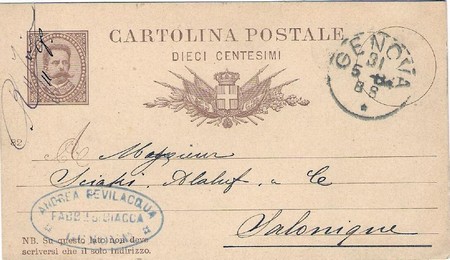 CARTOLINA POSTALE
DIECI CENTESIMI
GENOVA
31
5-84
88
82
A Messieur
Sciaki, Alaluf & Ce
Salonique
ANDREA BEVILACQUA
GENOVA
NB. Su questo lato non deve
scriversi che il solo indirizzo.